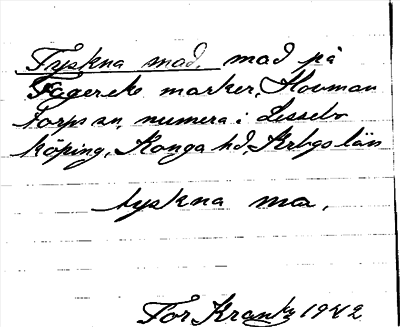 Tyskna mad. mad på
Fagereke marker, Hovman
torps sn, numera i Lessebo
köping, Konga hd, Krbgs län
tyskna ma.
Tor Krantz 1942